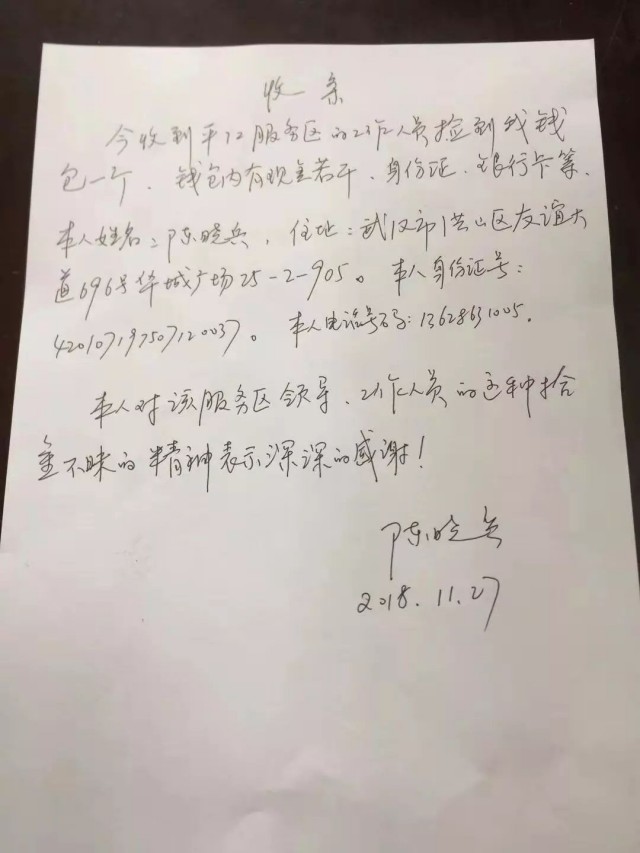 收条
今收到平江服务区的工作人员捡到我钱
包一个，钱包内有现金若干、身份证、银行卡等。
本人姓名：陈晓兵，住址：武汉市洪山区友谊大
道696号华城广场25-2-905。本人身份证号：
420107197507120037。本人电话号码：13628631005.
本人对该服务区领导、工作人员的这种拾
金不昧的精神表示深深的感谢！
陈晓兵
2018.11.27